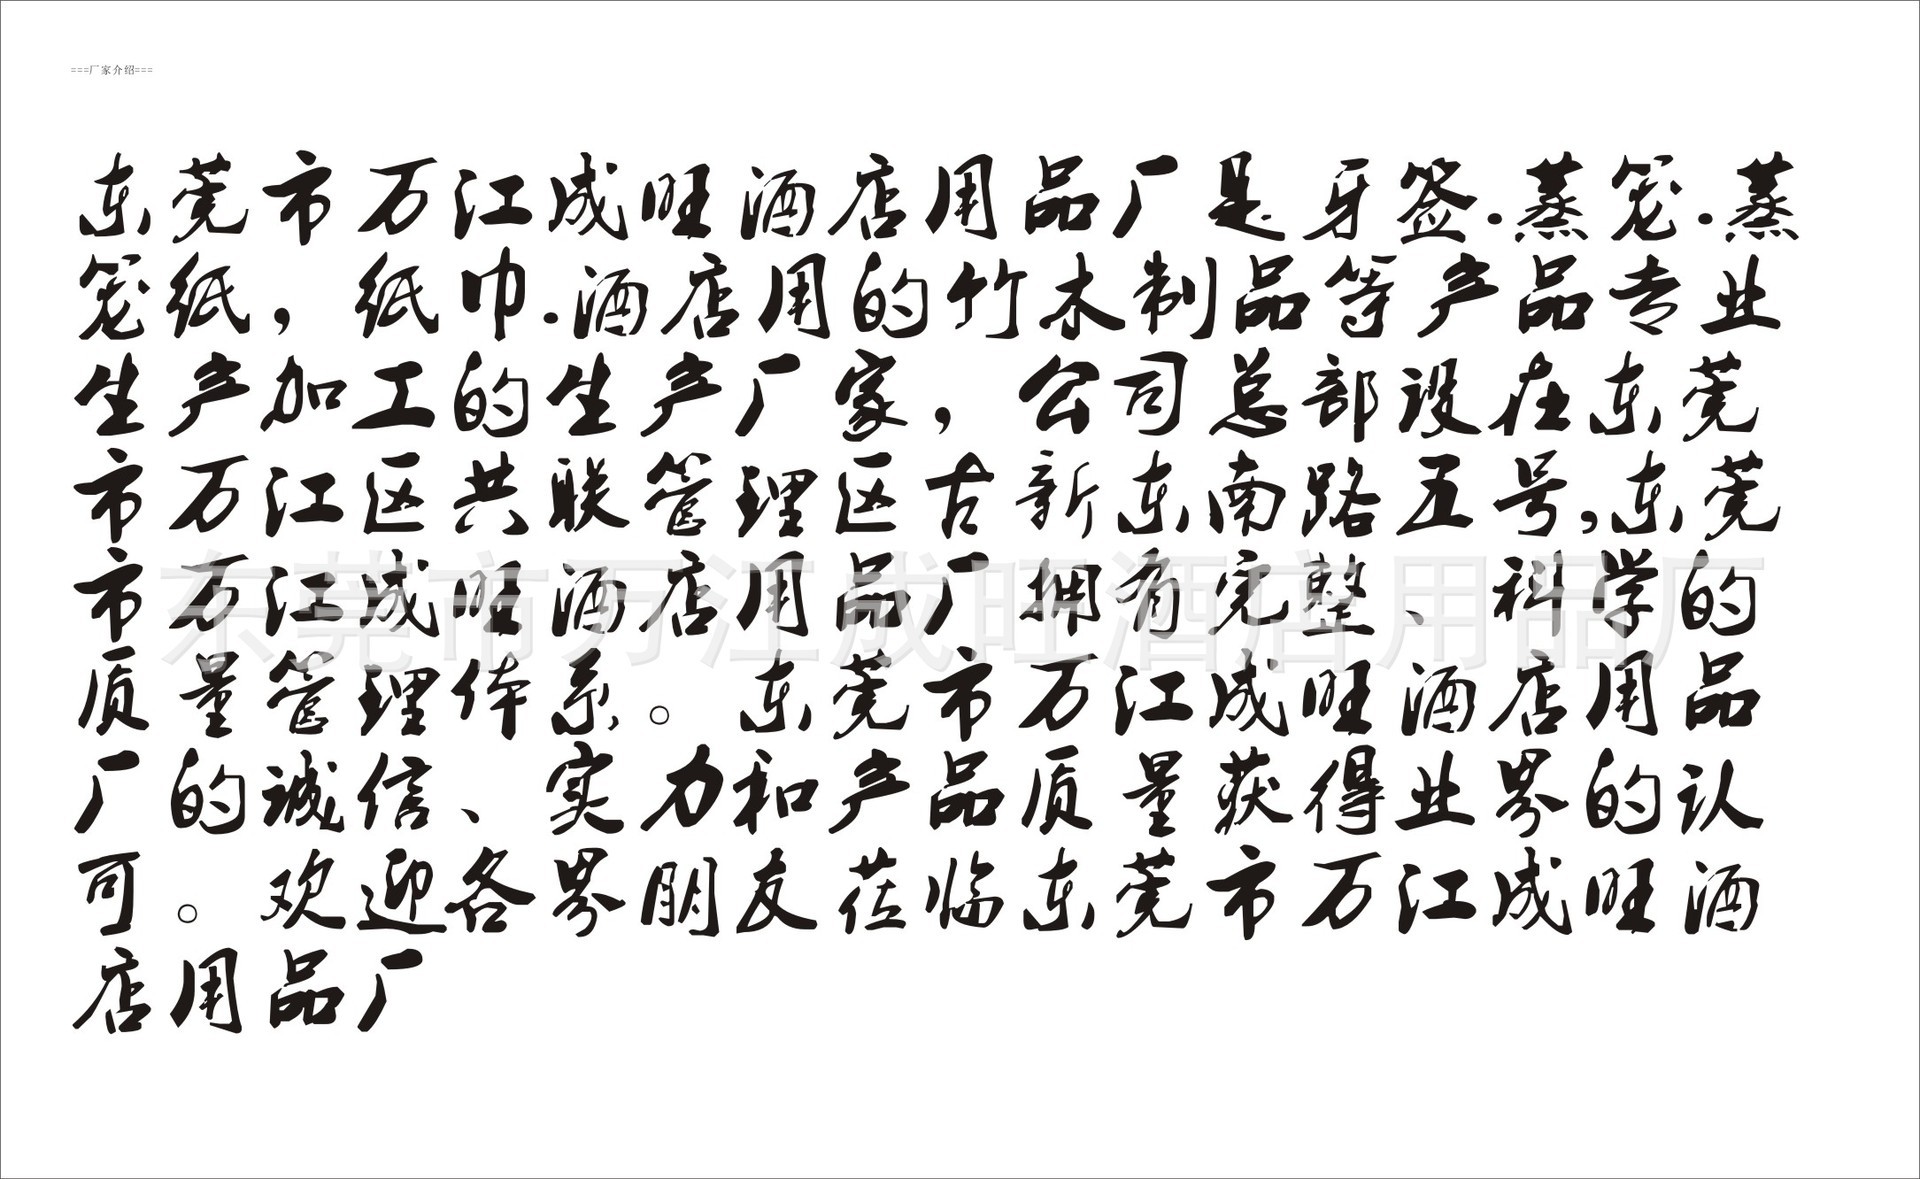 ===厂家介绍===
东莞市万江成旺酒店用品厂是牙签.蒸笼.蒸
笼纸，纸巾.酒店用的竹木制品等产品专业
生产加工的生产厂家，公司总部设在东莞
市万江区共联管理区古新东南路五号,东莞
市万江成旺酒店用品厂拥有完整、科学的
质量管理体系。东莞市万江成旺酒店用品
厂的诚信、实力和产品质量获得业界的认
可。欢迎各界朋友莅临东莞市万江成旺酒
店用品厂
东莞市万江成旺酒店用品厂